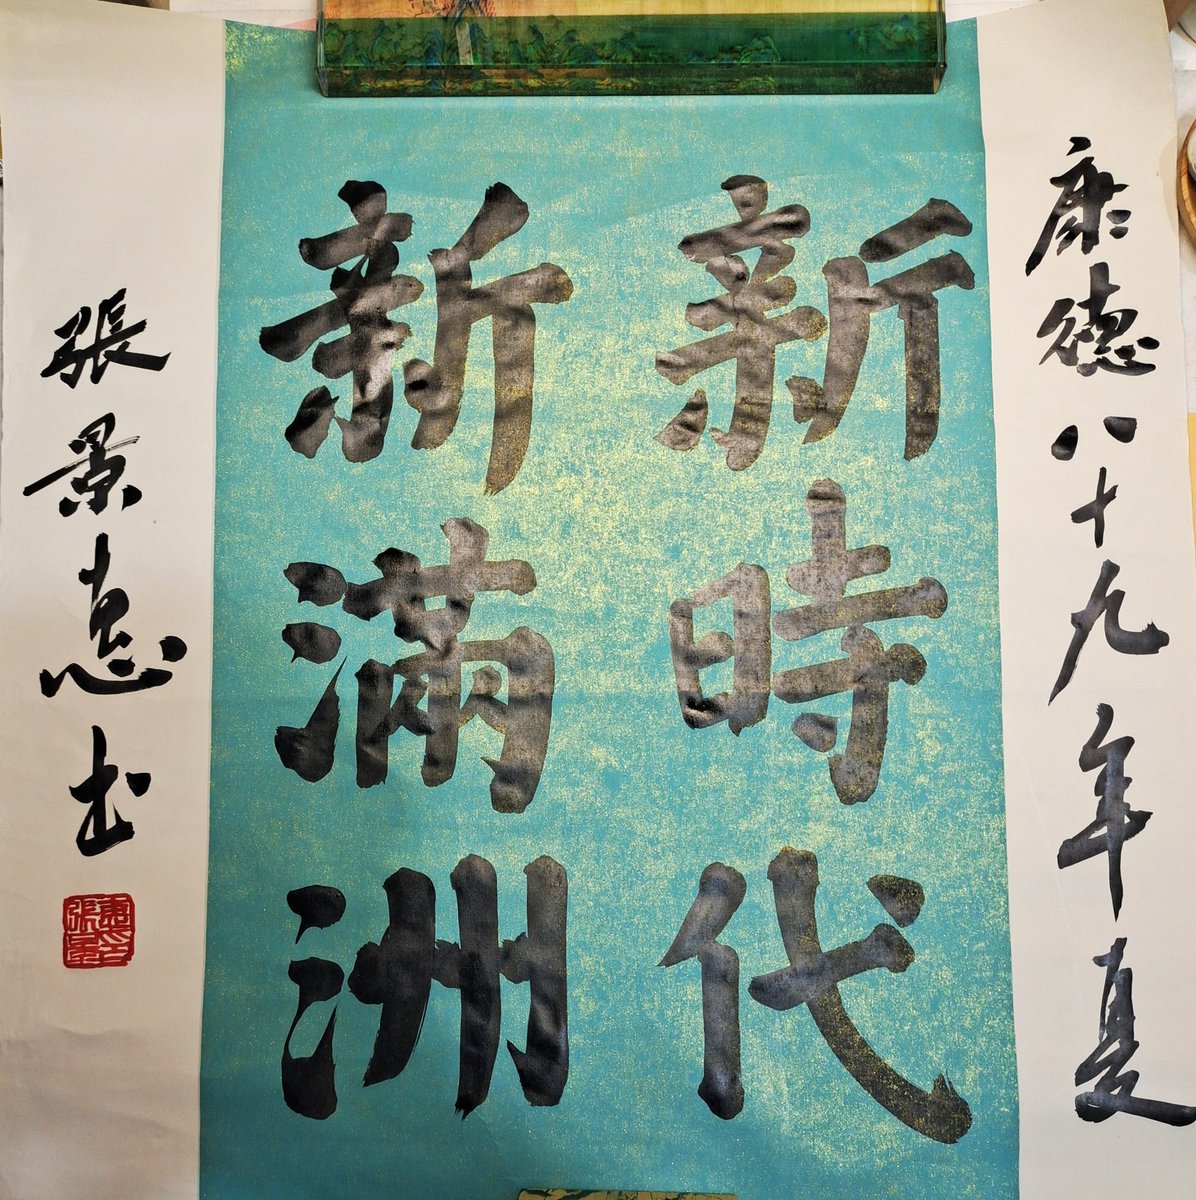 康德八十九年夏
新時代
新滿洲
張景惠書